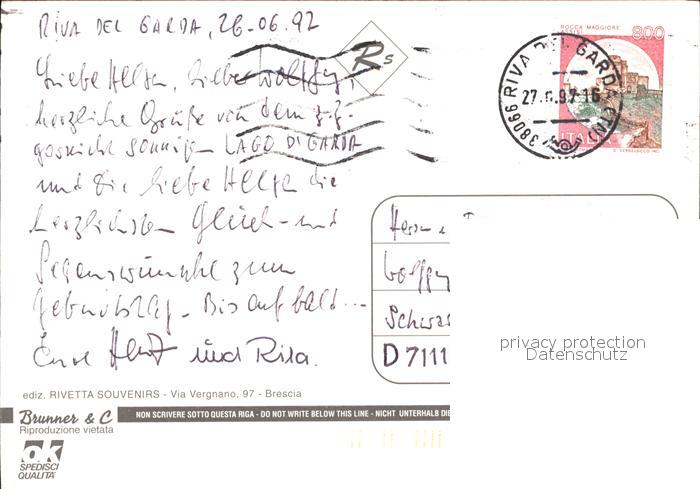 RIVA DEL GARDA, 26.06.92
Liebe Helga, lieber Wolfgang,
herzliche Grüße von dem z.Z.
garnicht sonnigen LAGO DI GARDA
und Dir liebe Helga die
herzlichsten Glück- und
Segenswünsche zum
Geburtstag. Bis auf bald...
Eure und Rita.
Rs
ROCCA MAGGIORE
800
ITALIA
38066 RIVA DEL GARDA (TN)
27.6.92.16
Wolfg
Schwa
D 7111
privacy protection
Datenschutz
ediz. RIVETTA SOUVENIRS - Via Vergnano, 97 - Brescia
Brunner & C
Riproduzione vietata
NON SCRIVERE SOTTO QUESTA RIGA - DO NOT WRITE BELOW THIS LINE - NICHT UNTERHALB DIE
ok
SPEDISCI
QUALITÀ